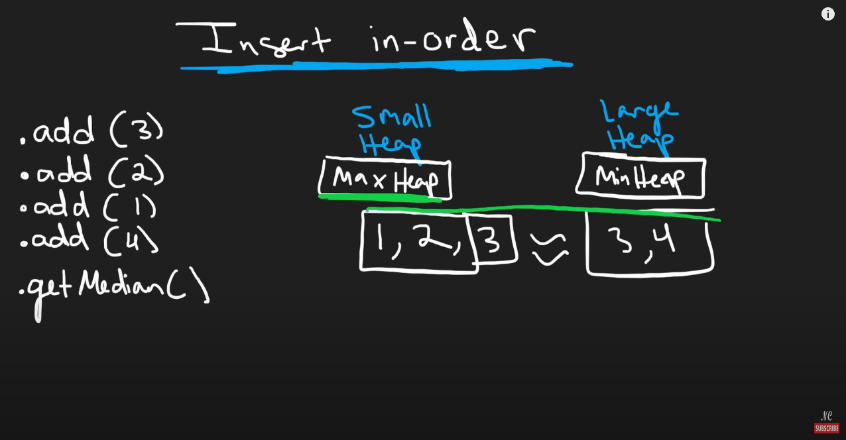 Insert in-order
.add (3)
.add (2)
.add (1)
.add (4)
.getMedian()
Small
Heap
Max Heap
1, 2, 3
≈
Large
Heap
Min Heap
3, 4
NC
SUBSCRIBE
i